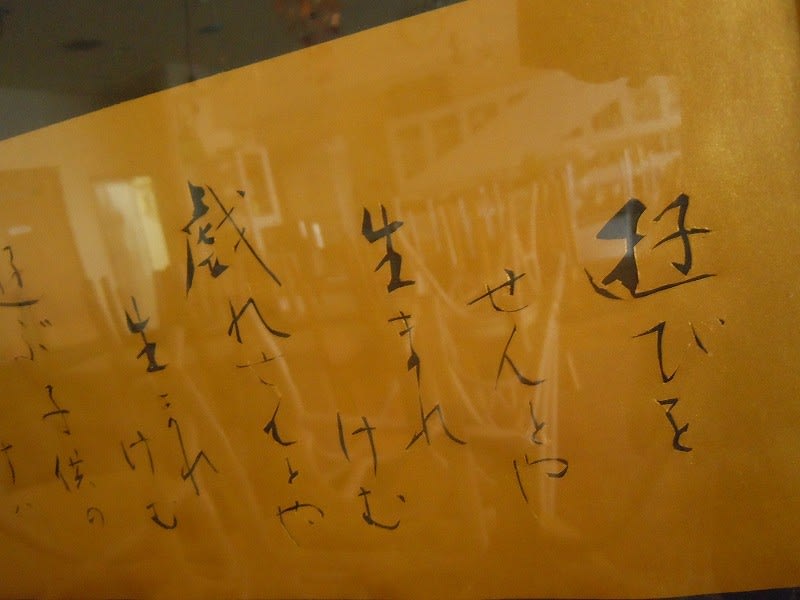 遊びを
せんとや
生まれ
けむ
戯れせんとや
生まれ
けむ
遊ぶ子供の